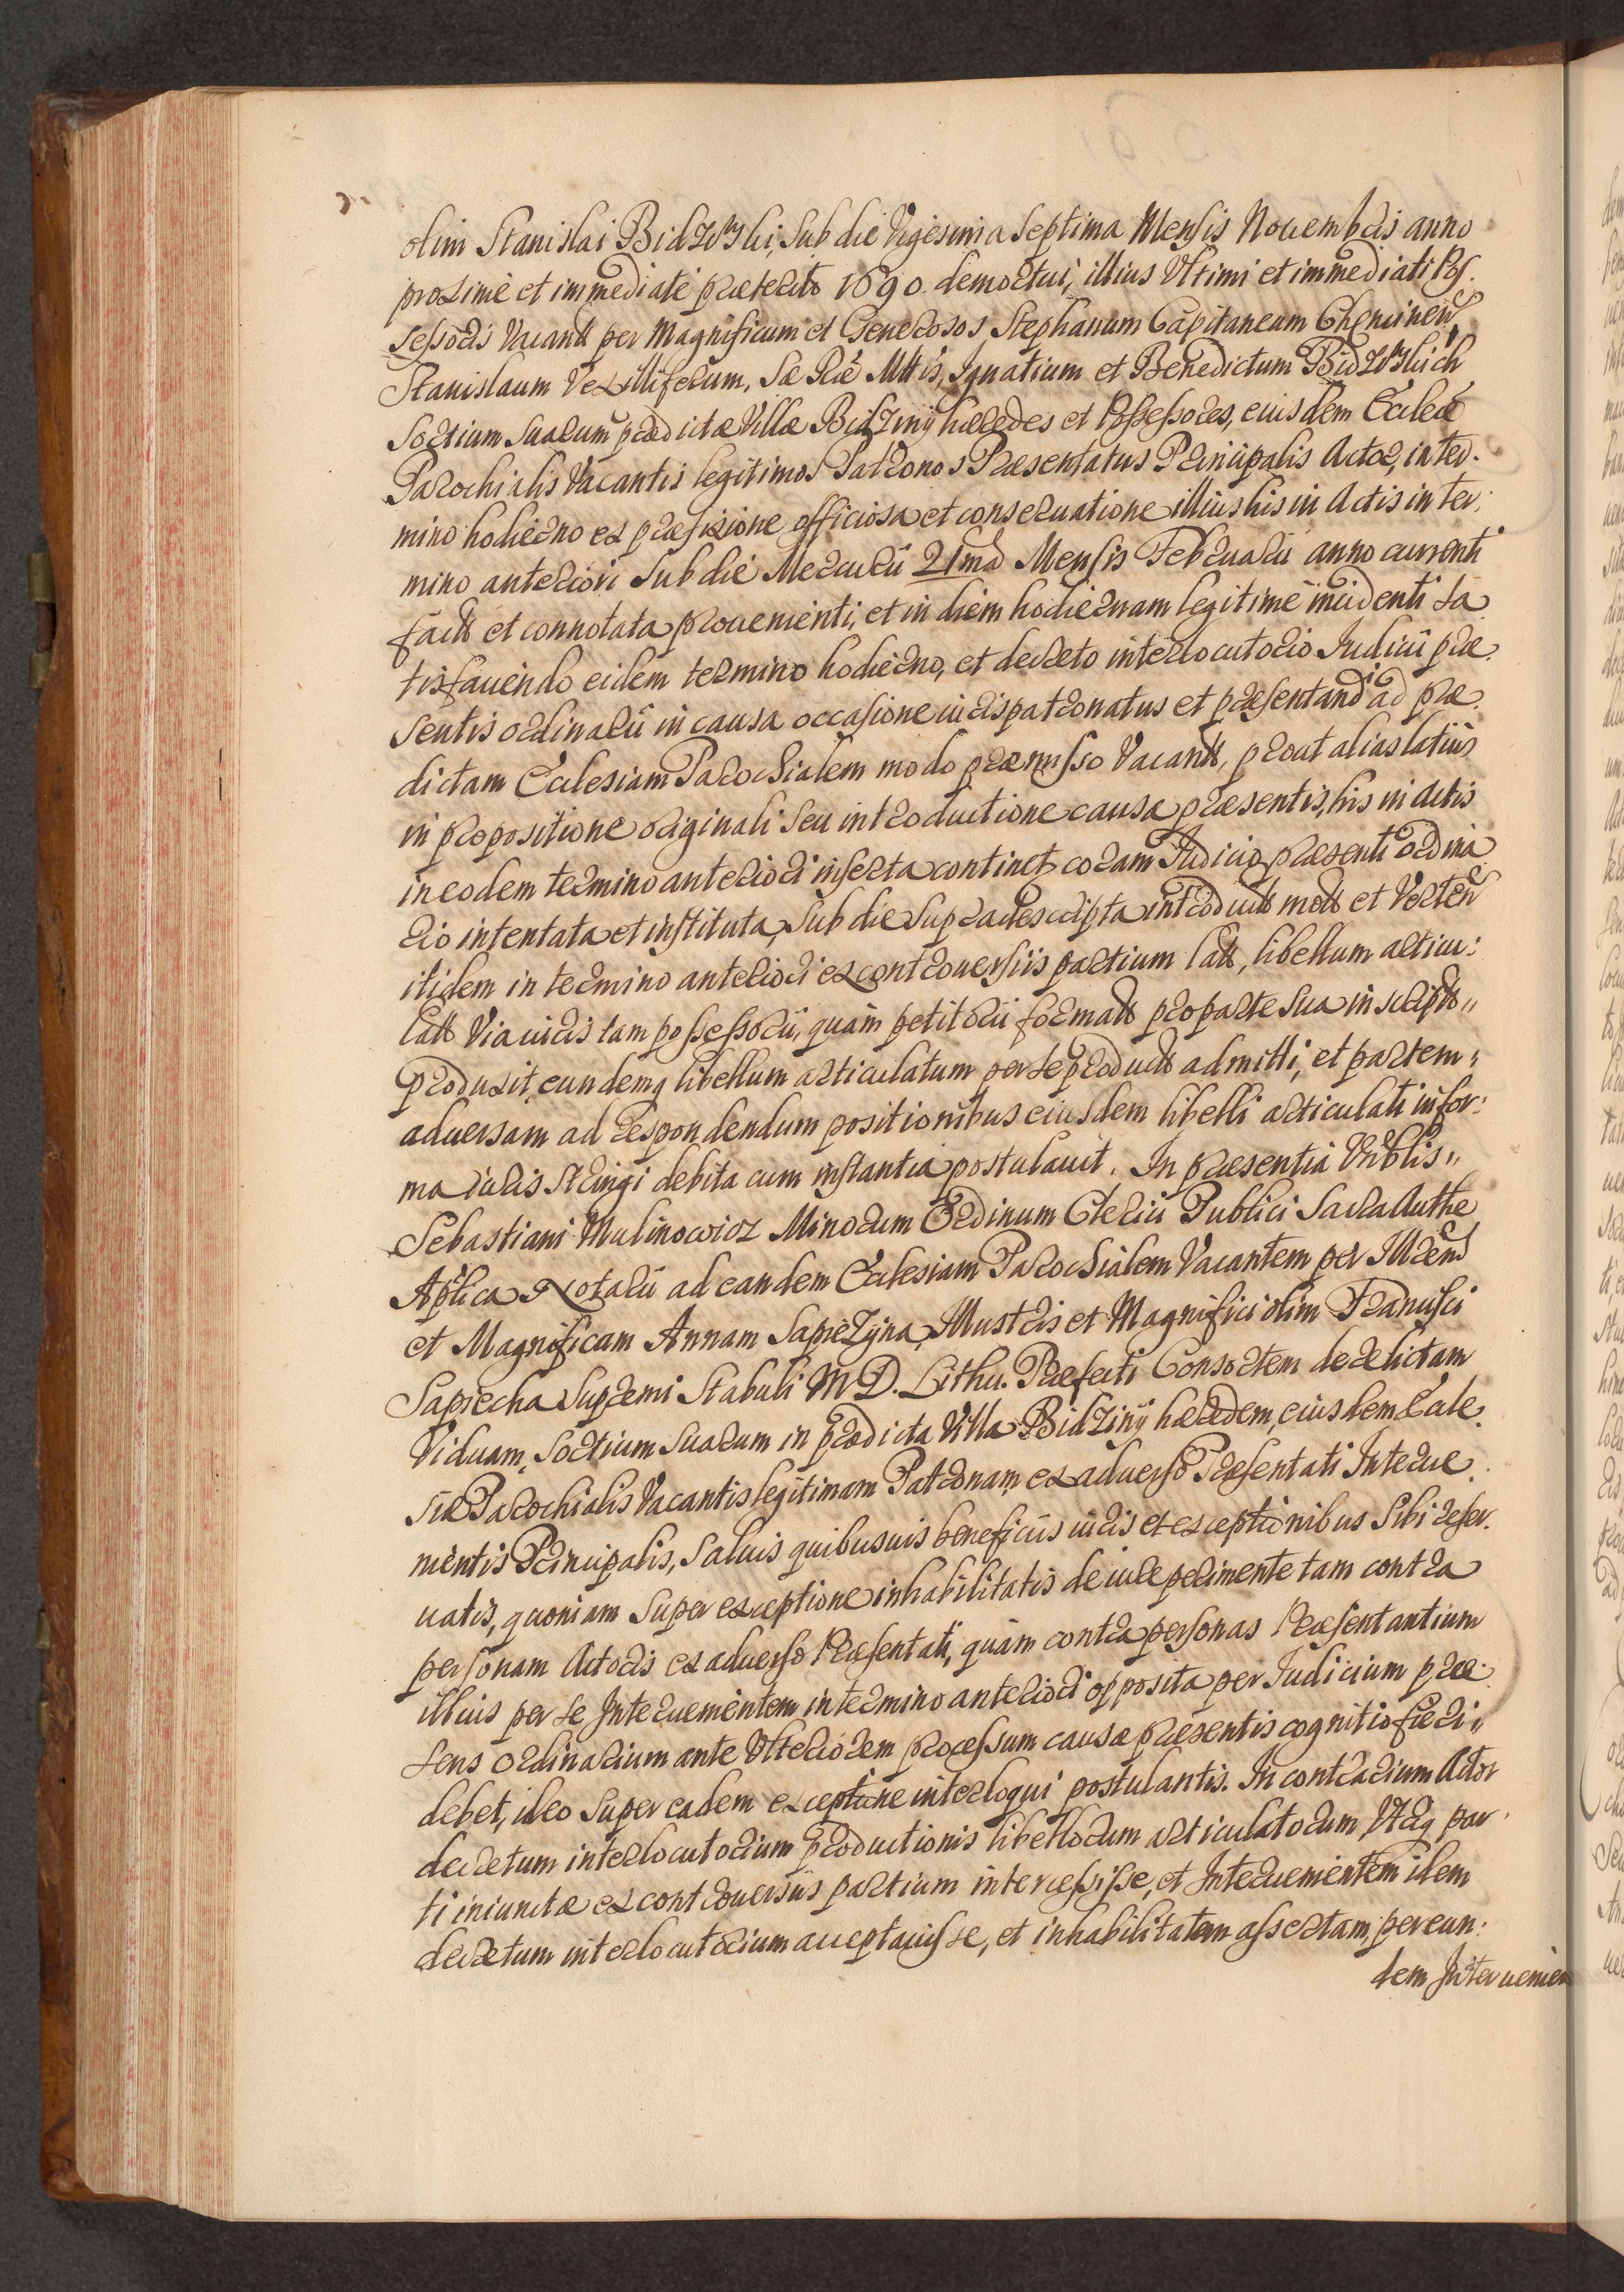 olim Stanislai Bidzinski, sub die Vigesima Septima Mensis Nouembris anno
proxime et immediate præterito 1690. demortui, illius Vltimi et immediati Pos-
sessoris Vacantt per Magnificum et Generosos Stephanum Capitaneum Chencinen
Stanislaum Vexilliferum, Sæ Ræ Mttis, Ignatium et Benedictum Bidzinskich
Sortium suarum prædictæ Villæ Bidziny hæredes et Possessores, eiusdem Eccleæ
Parochialis Vacantis legitimos Patronos Præsentatus Principalis Actor, in ter-
mino hodierno ex præfixione officiosa et conseruatione illius his in Actis in ter-
mino anteriori sub die Mercurii 21ma Mensis Februarii anno currenti
factt et connotata proueniénti, et in diem hodiernam legitime incidenti sa
tisfaciendo eidem termino hodierno, et decreto interlocutorio Iudicii præ-
sentis ordinarii in causa occasione iuris patronatus et præsentandi ad præ-
dictam Ecclesiam Parochialem modo præmisso Vacantt, prout alias latius
in propositione originali seu introductione causæ præsentis, his in actis
in eodem termino anteriori inserta continet coram Iudicio præsenti ordina
rio intentata et instituta, sub die supradescripta introductt mott et Verten
itidem in termino anteriori ex controuersiis partium latt, libellum articu-
latt Via iuris tam possessorii, quam petitorii formatt pro parte sua in scriptt
produxit, eundemq libellum articulatum per se productt admitti, et partem
aduersam ad respondendum positionibus eiusdem libelli articulati in for-
ma iuris stringi debita cum instantia postulauit. In præsentia Vnblis
Sebastiani Malinowicz Minorum Ordinum Clerici Publici Sacra Authe
Aplica Notarii ad eandem Ecclesiam Parochialem Vacantem per Illren
et Magnificam Annam Sapiezyna, Illustris et Magnifici olim Francisci
Sapiecha Supremi Stabuli M D. Lithu. Præfecti Consortem derelictam
Viduam, Sortium suarum in prædicta Villa Bidziny hæredem, eiusdem Eccle-
siæ Parochialis Vacantis legitimam Patronam, ex aduerso Præsentati Interue-
nientis Principalis, saluis quibusuis beneficiis iuris et exceptionibus sibi reser-
uatis, quoniam super exceptione inhabilitatis de iure perimente tam contra
personam Actoris ex aduerso Præsentati, quam contra personas Præsentantium
illius per se Interuenientem in termino anteriori opposita per Iudicium præ-
sens ordinarium ante Vlteriorem processum causæ præsentis cognitio fieri
debet, ideo super eadem exceptione interloqui postulantis. In contrarium Actor
decretum interlocutorium productionis libellorum articulatorum Vtriq par-
ti iniunctæ ex controuersiis partium intercessisse, et Interuenientem idem
decretum interlocutorium acceptauisse, et inhabilitatem assertam, per eun-
dem Interuenien